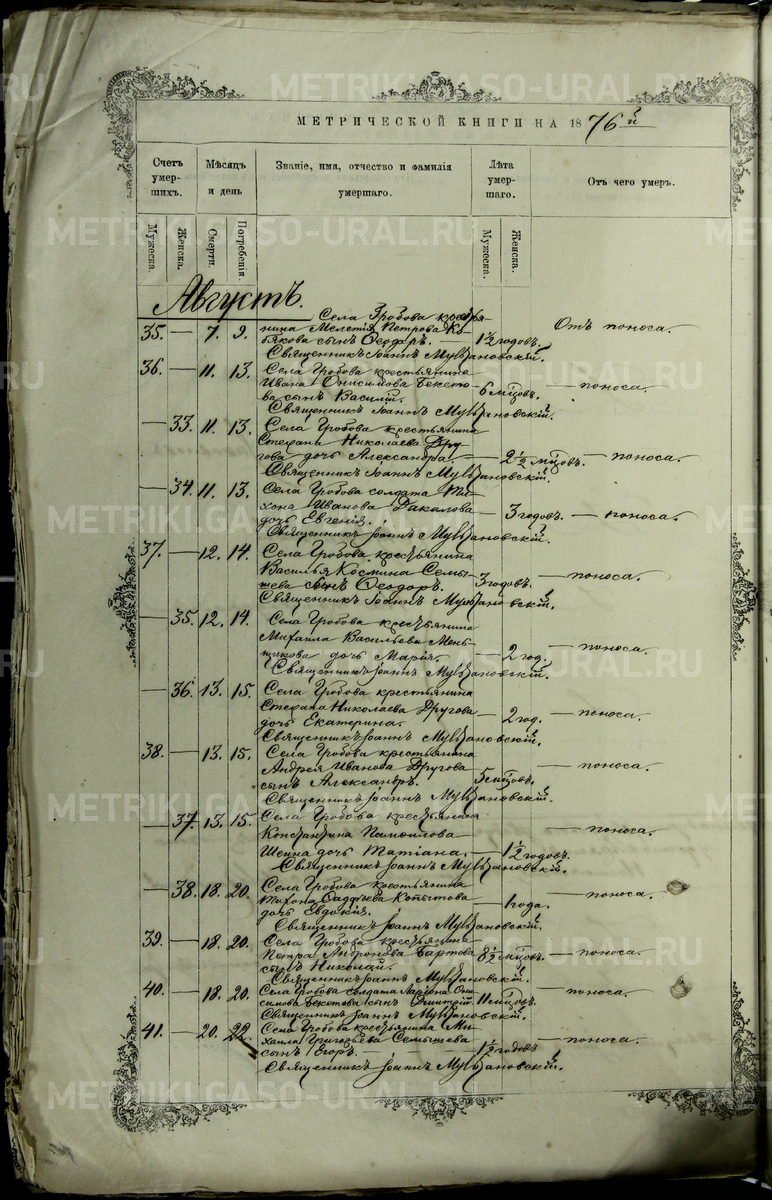 METRIKI.GASO-URAL.RU
МЕТРИЧЕСКОЙ КНИГИ НА 1876й
Счетъ умер-шихъ.
Мѣсяцъ и день
Званіе, имя, отчество и фамилія умершаго.
Лѣта умер-шаго.
Отъ чего умеръ.
Мужеска.
Женска.
Смерти.
Погребенія.
Мужеска.
Женска.
Августъ.
Села Гробова крестья-
35. — 7. 9. нина Мелетія Петрова Ко-
бякова сынъ Ѳеодоръ. — 1½ годовъ. Отъ поноса.
Священникъ Іоаннъ
36. — 11. 13. Села Гробова крестьянина
Ивана Онисимова Бекето-
ва сынъ Василій. 6 мѣцовъ. — поноса.
Священникъ Іоаннъ
— 33. 11. 13. Села Гробова крестьянина
Стефана Николаева Дру-
гова дочь Александра — 2½ мѣцовъ. — поноса.
Священникъ Іоаннъ
— 34. 11. 13. Села Гробова солдата Ти-
хона Иванова
дочь Евгенія. — 3 годовъ. — поноса.
Священникъ Іоаннъ
37. — 12. 14. Села Гробова крестьянина
Василья Космина Семы-
шева сынъ Ѳеодоръ. 3 годовъ. — поноса.
Священникъ Іоаннъ
— 35. 12. 14. Села Гробова крестьянина
Михаила Васильева Мень-
щикова дочь Марія. — 2 год. — поноса.
Священникъ Іоаннъ
— 36. 13. 15. Села Гробова крестьянина
Стефана Николаева Другова
дочь Екатерина. — 2 год. — поноса.
Священникъ Іоаннъ
38. — 13. 15. Села Гробова крестьянина
Андрея Иванова Другова
сынъ Александръ. 5 мѣцовъ. — поноса.
Священникъ Іоаннъ
— 37. 13. 15. Села Гробова крестьянина
Константина
дочь Татіана. — 1½ годовъ. — поноса.
Священникъ Іоаннъ
— 38. 18. 20. Села Гробова крестьянина
Тихона Копытова
дочь Евдокія. — 1 года. — поноса.
Священникъ Іоаннъ
39. — 18. 20. Села Гробова крестьянина
Петра Андронова Бартова
сынъ Николай. 8½ мѣцовъ. — поноса.
Священникъ Іоаннъ
40. — 18. 20. Села Гробова солдата Ларіона Они-
симова Бекетова сынъ Дмитрій. 11 мѣцовъ. — поноса.
Священникъ Іоаннъ
41. — 20. 22. Села Гробова крестьянина Ми-
хаила Григорьева Семышева
сынъ Егоръ. — 1½ годовъ — поноса.
Священникъ Іоаннъ